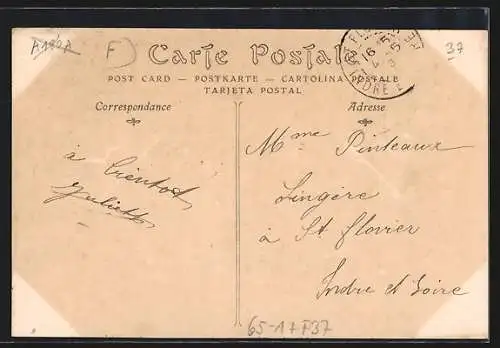 A190A
F
37
Carte Postale
POST CARD — POSTKARTE — CARTOLINA POSTALE
TARJETA POSTAL
Correspondance
Adresse
à bientot
Juliette
Mme Pinteaux
Lingère
à St Flovier
Indre et Loire
65-17F37